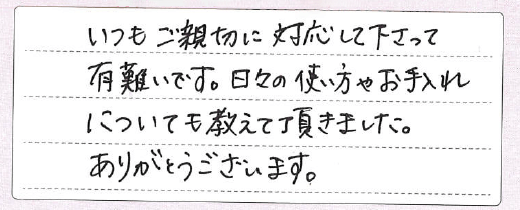 いつもご親切に対応して下さって
有難いです。日々の使い方やお手入れ
についても教えて頂きました。
ありがとうございます。